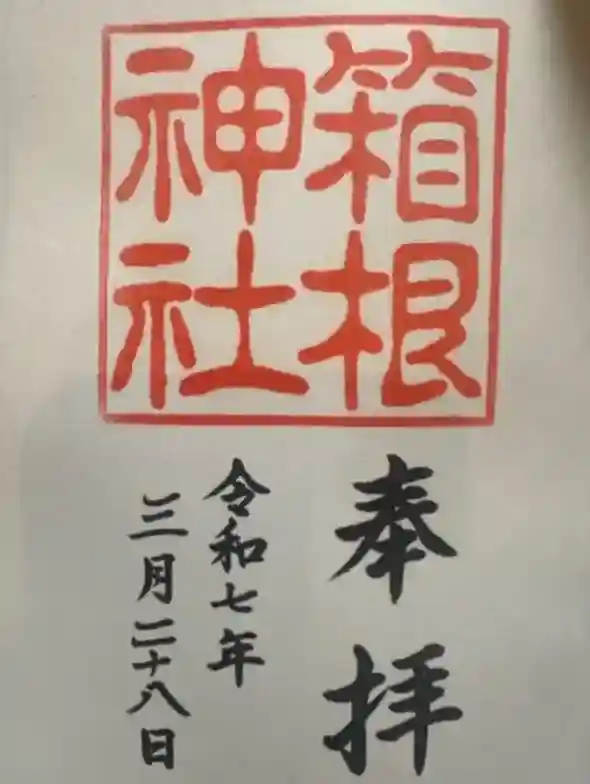 箱根
神社
奉拝
令和七年
三月二十八日